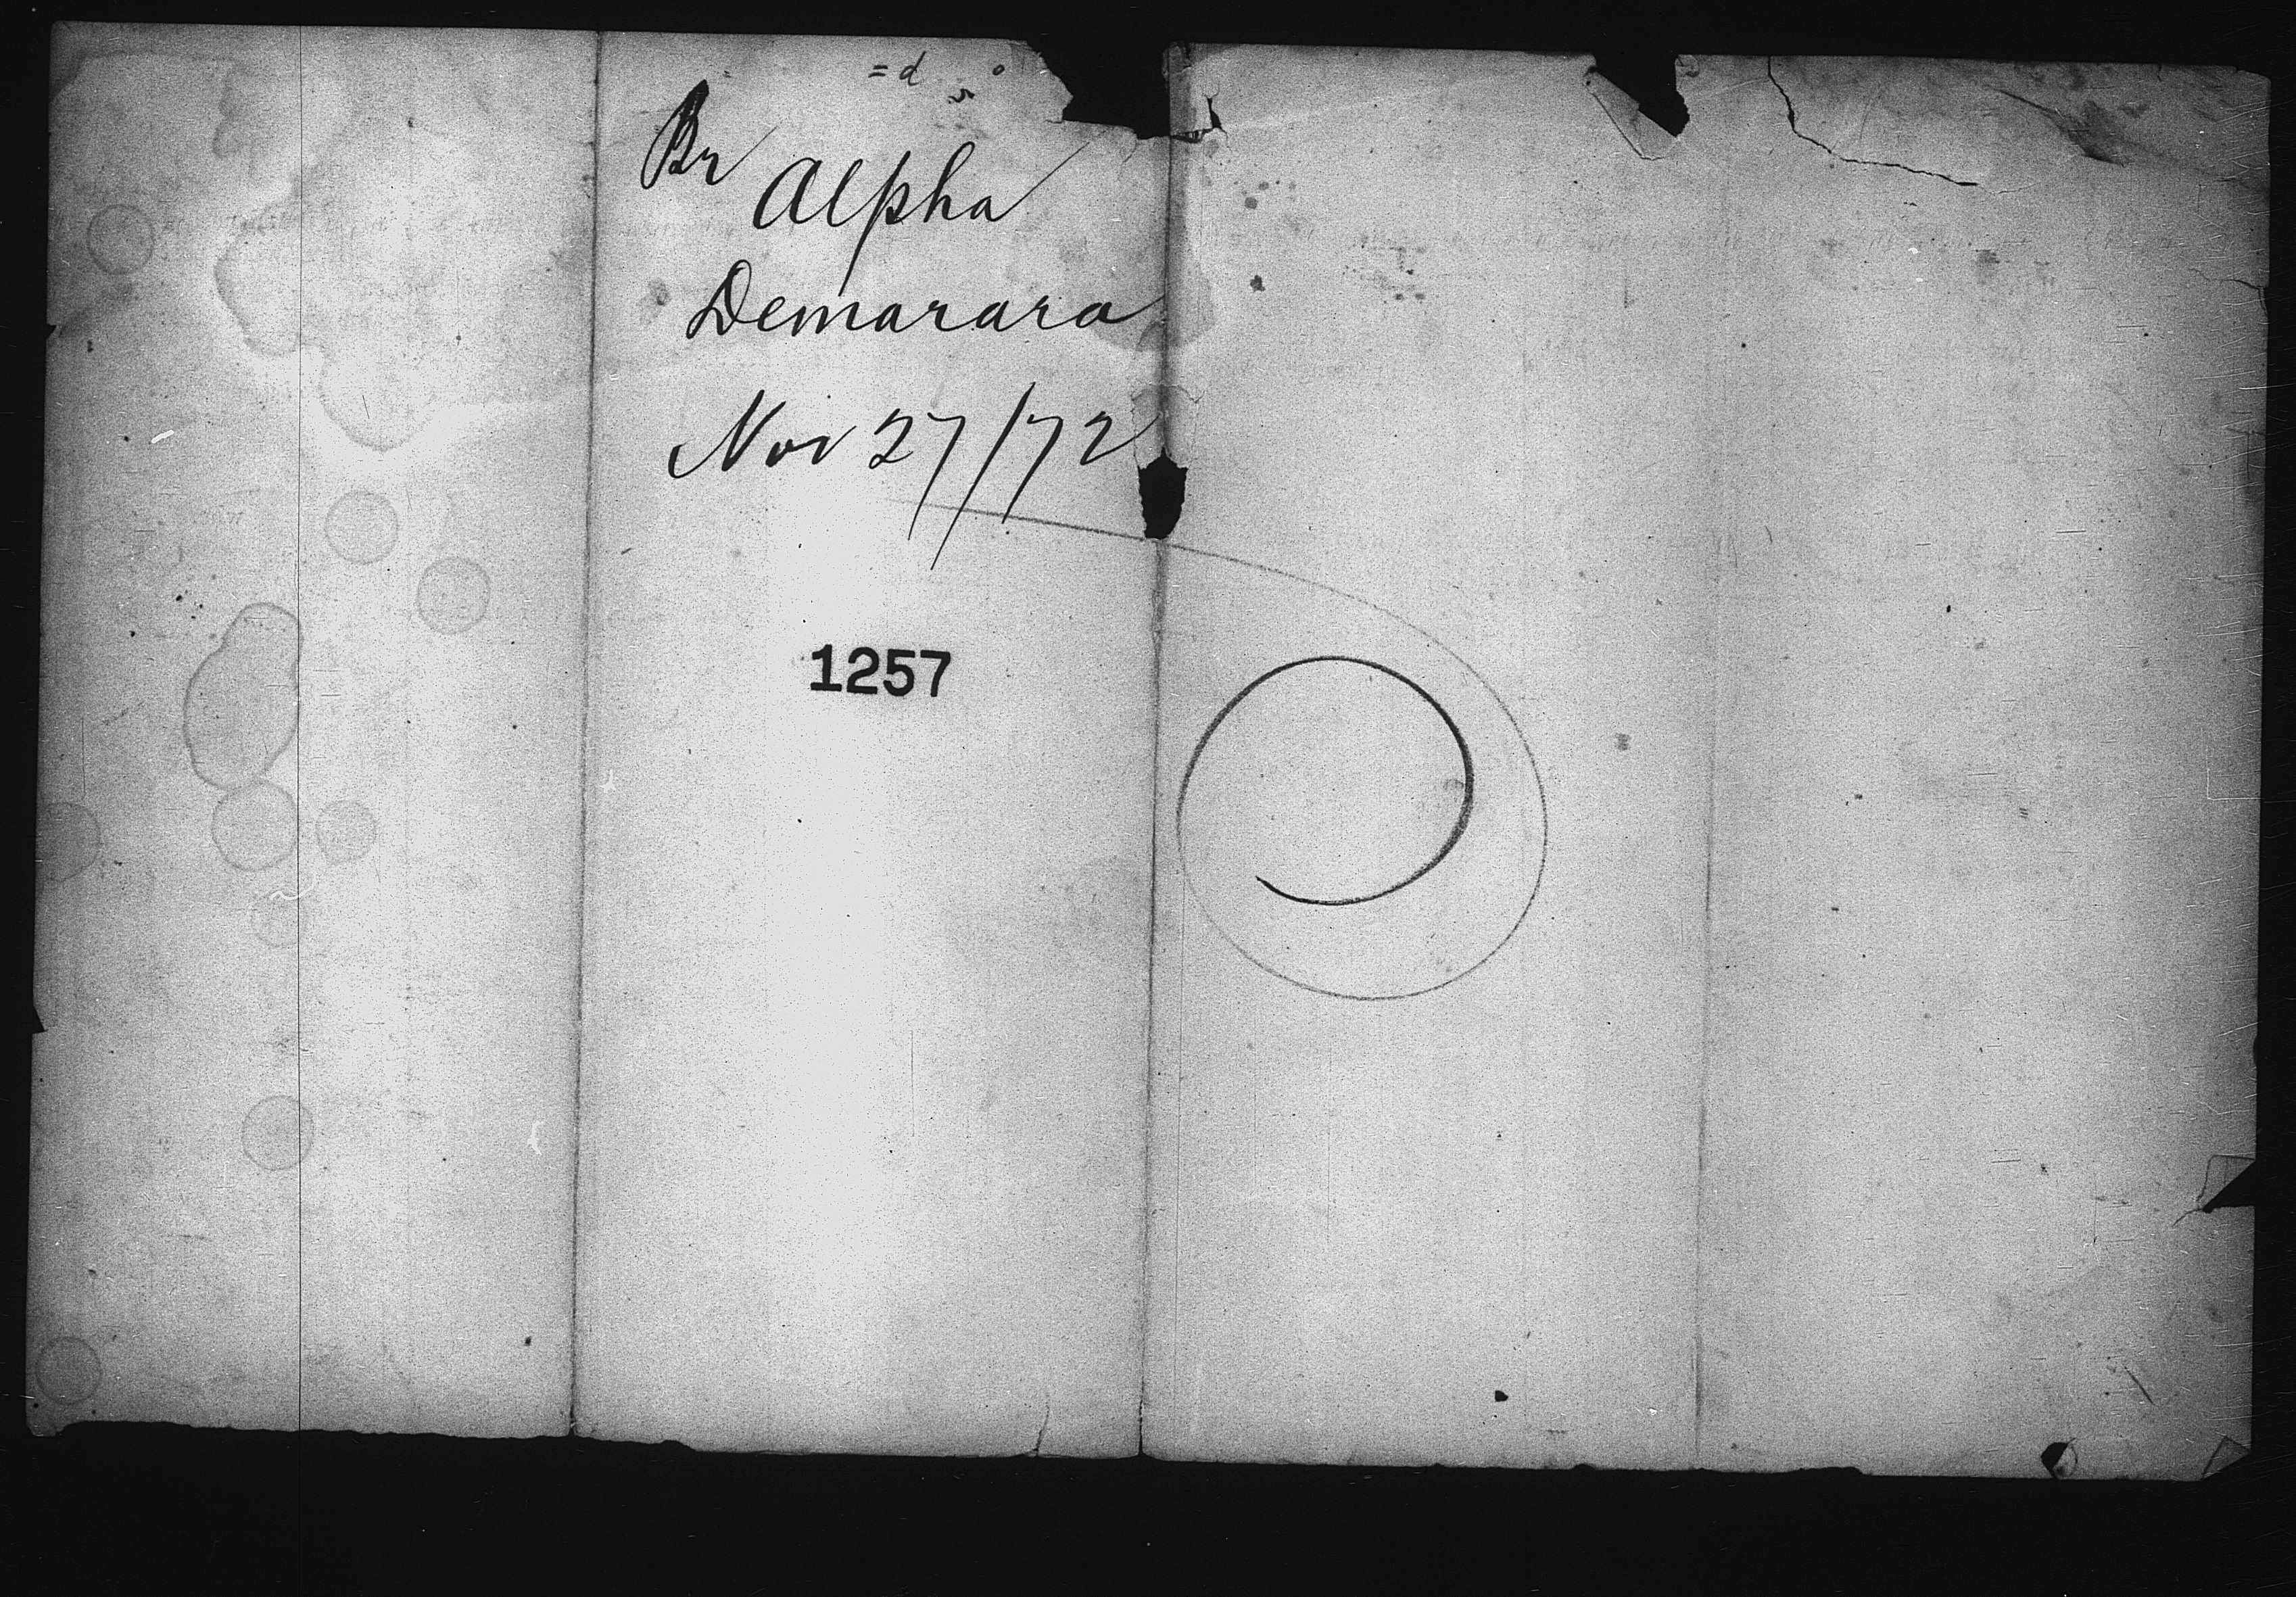 Br
Alpha
Demarara
Nov 27/72
1257